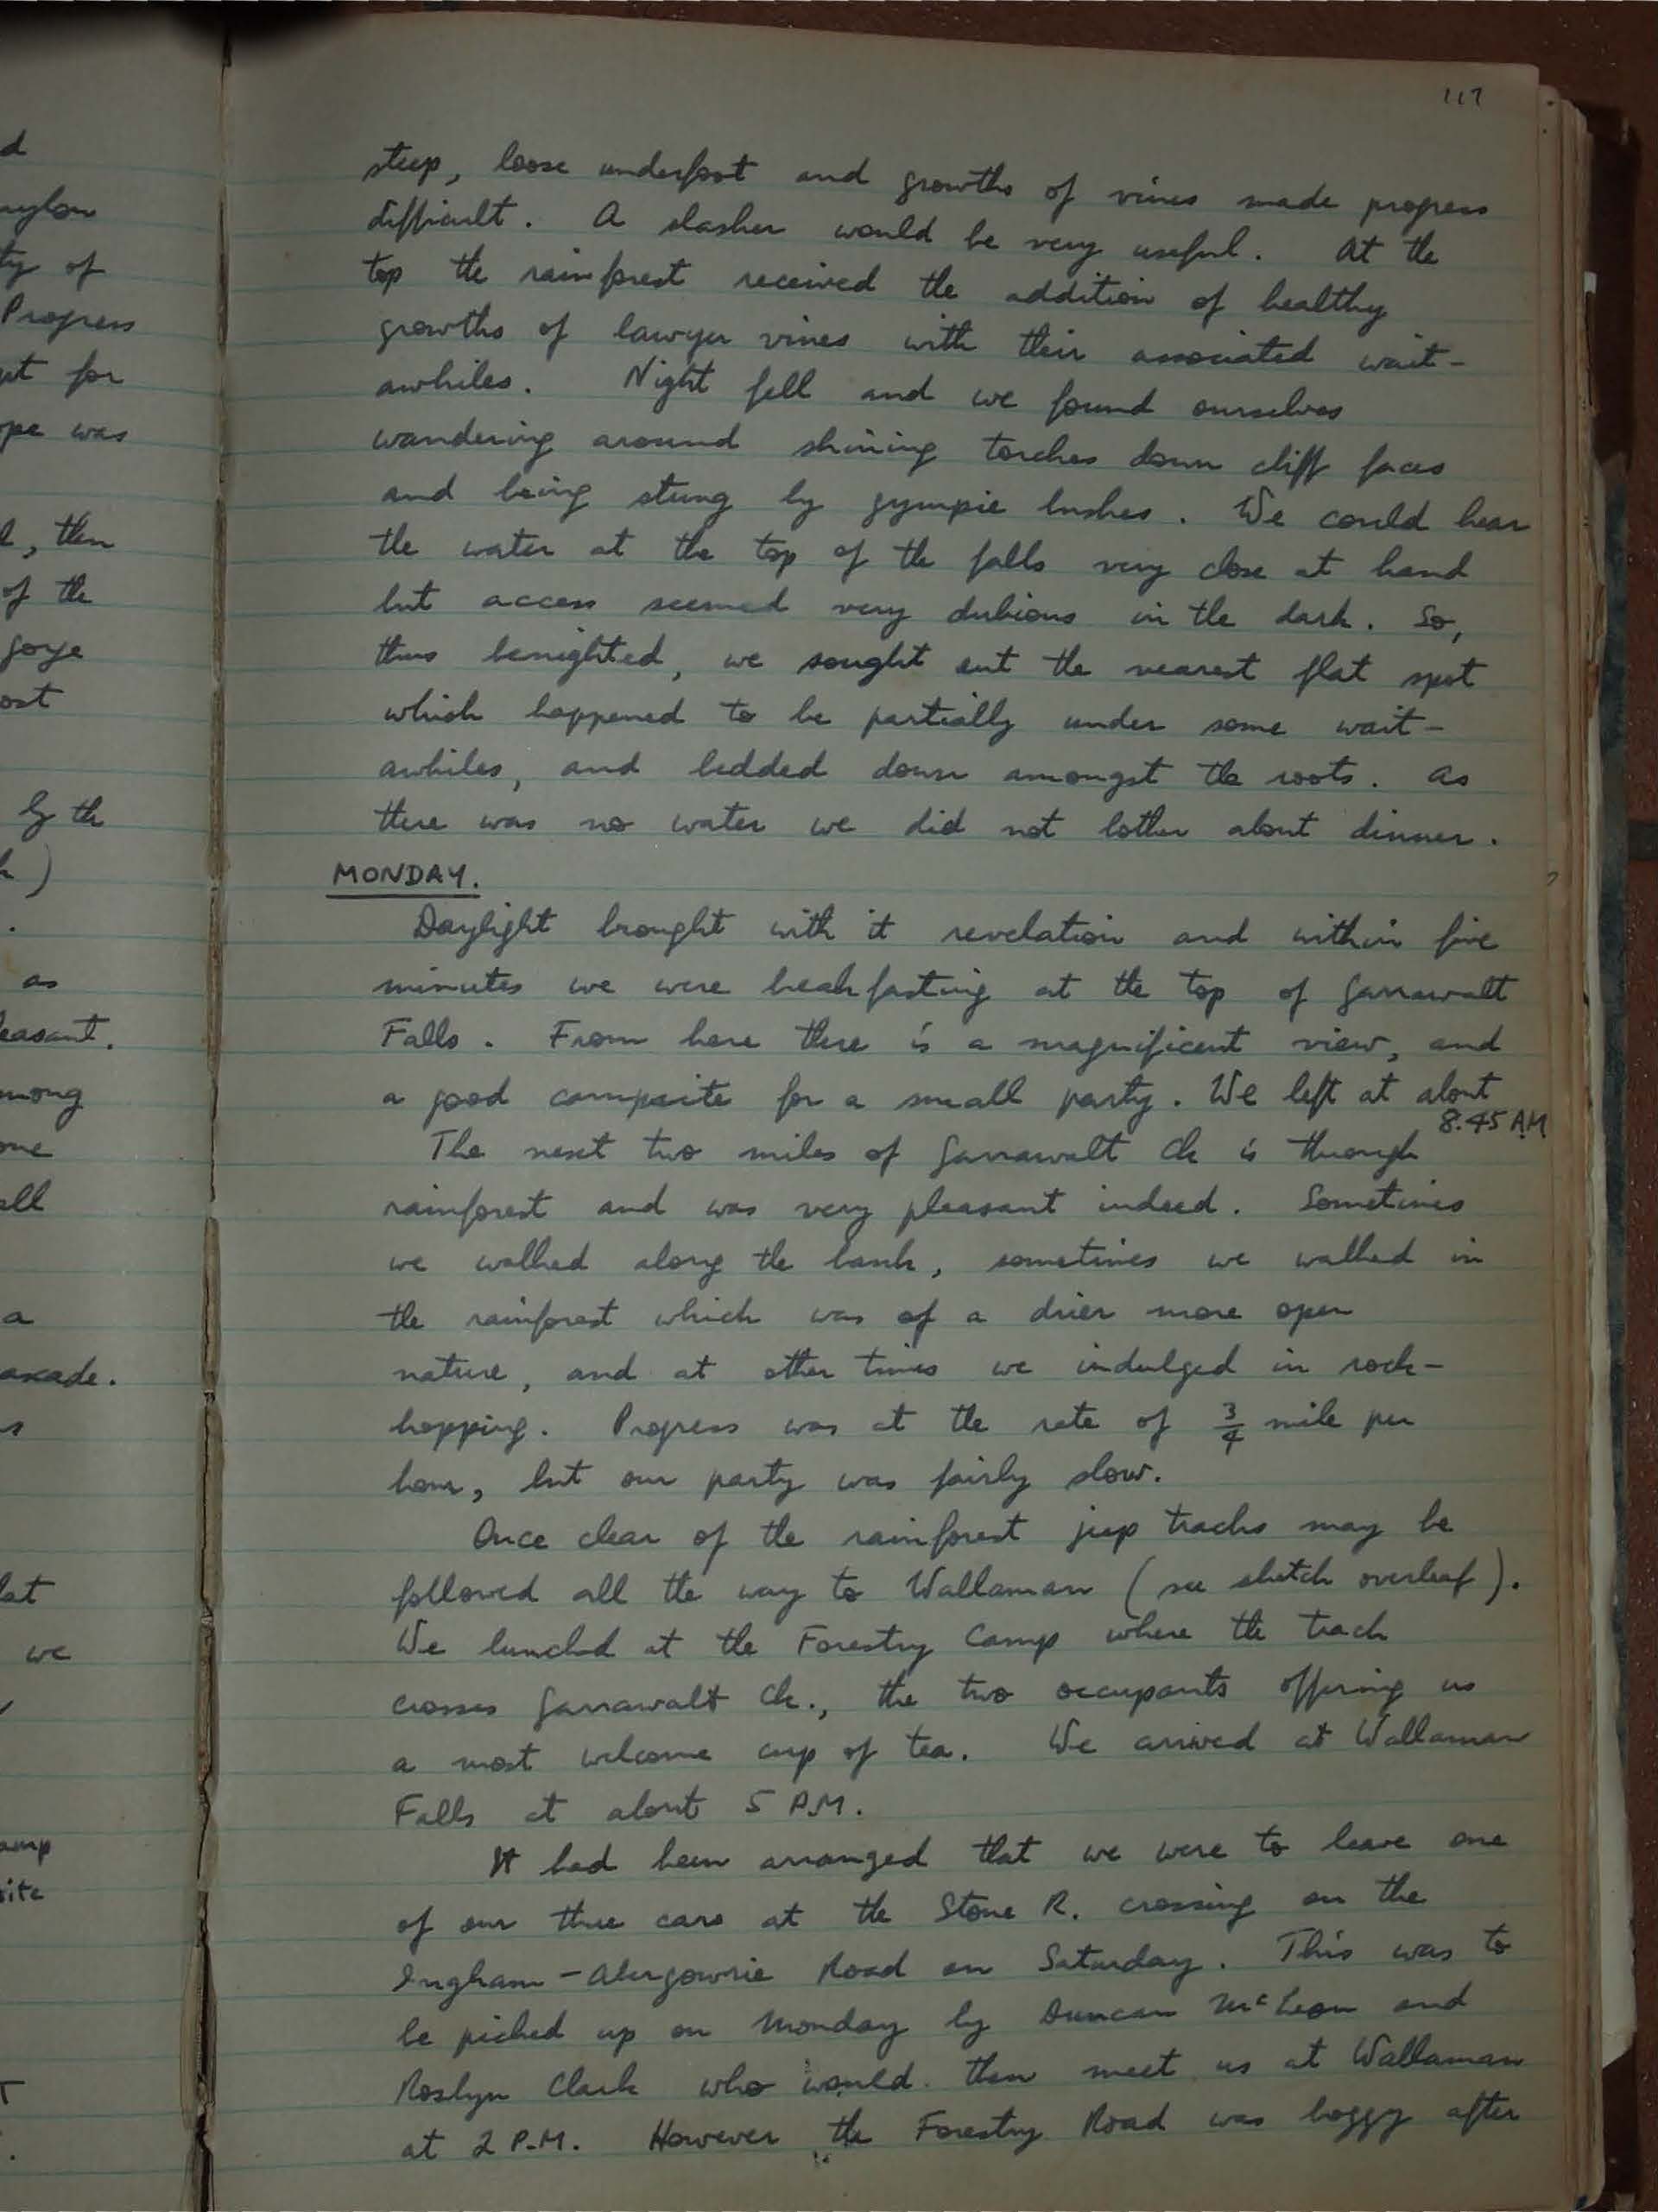 117
steep, loose underfoot and growths of vines made progress
difficult. A slasher would be very useful. At the
top the rainforest received the addition of healthy
growths of lawyer vines with their associated wait-
awhiles. Night fell and we found ourselves
wandering around shining torches down cliff faces
and being stung by gympie bushes. We could hear
the water at the top of the falls very close at hand
but access seemed very dubious in the dark. So,
thus benighted, we sought out the nearest flat spot
which happened to be partially under some wait-
awhiles, and bedded down amongst the roots. As
there was no water we did not bother about dinner.
MONDAY.
Daylight brought with it revelation and within five
minutes we were breakfasting at the top of Garrawalt
Falls. From here there is a magnificent view, and
a good campsite for a small party. We left at about
8.45 AM
The next two miles of Garrawalt Ck is through
rainforest and was very pleasant indeed. Sometimes
we walked along the bank, sometimes we walked in
the rainforest which was of a drier more open
nature, and at other times we indulged in rock-
hopping. Progress was at the rate of 3/4 mile per
hour, but our party was fairly slow.
Once clear of the rainforest jeep tracks may be
followed all the way to Wallaman (see sketch overleaf).
We lunched at the Forestry Camp where the track
crosses Garrawalt Ck., the two occupants offering us
a most welcome cup of tea. We arrived at Wallaman
Falls at about 5 P.M.
It had been arranged that we were to leave one
of our three cars at the Stone R. crossing on the
Ingham - Abergowrie Road on Saturday. This was to
be picked up on Monday by Duncan McLeon and
Roslyn Clark who would then meet us at Wallaman
at 2 P.M. However the Forestry Road was boggy after